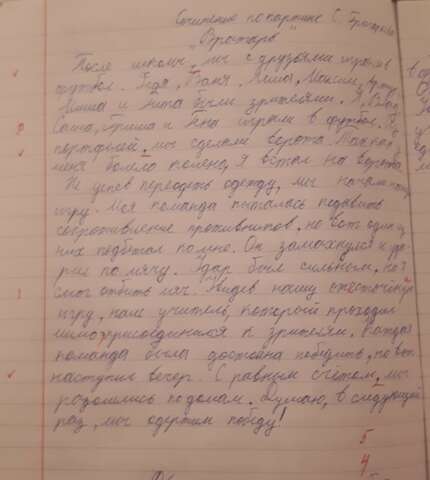 Сочинение по картине С. Григорьева
"Вратарь"
После школы, мы с друзьями играли в
футбол. Петя, Ваня, Миша, Максим,
Миша и Аня были зрителями. Я,
Саша, Гриша и Яна играли в футбол. Из
портфелей, мы сделали ворота. Так как у
меня болело колено, я встал на ворота.
Не успев переодеть одежду, мы начали
игру. Моя команда пыталась подавить
сопротивление противников, но вот один из
них подбежал ко мне. Он замахнулся и уда-
рил по мячу. Удар был сильным, но я
смог отбить мяч. Увидев нашу ожесточёную
игру, наш учитель, который проходил
мимо, присоединился к зрителям. Каждая
команда была достойна победить, но вот
наступил вечер. С равным счётом, мы
разошлись по домам. Думаю, в следующий
раз, мы одержим победу!
5
4